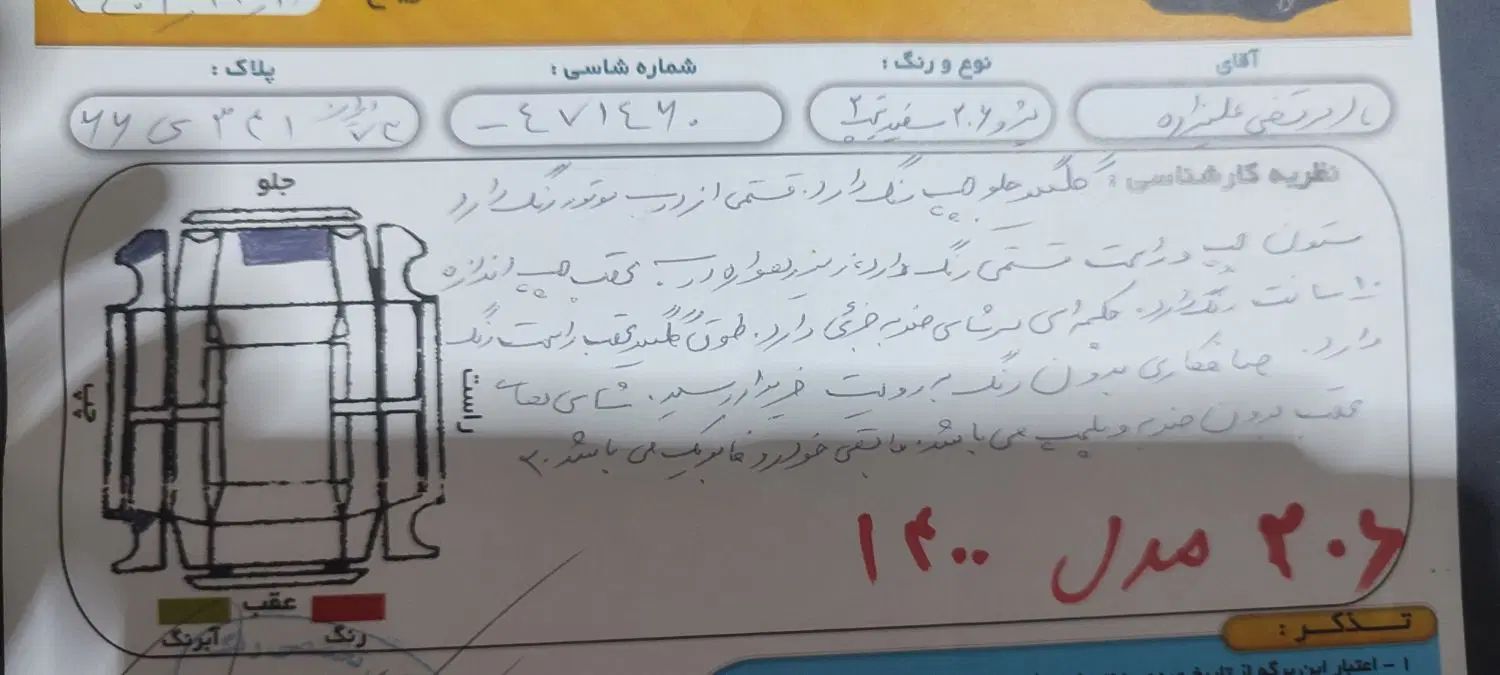 آقای
نوع و رنگ :
شماره شاسی :
پلاک :
مرتضی علیزاده
پژو ۲۰۶ سفید تیپ ۲
۴۷۱۴۶۰ -
ایران ۷۲ ۳۴۱ ی ۶۶
نظریه کارشناسی : گلگیر جلو چپ رنگ دارد. قسمتی از درب موتور رنگ دارد
ستون چپ و راست قسمتی رنگ دارد، زیر نوار درب عقب چپ اندازه
۱۰ سانت رنگ دارد. سرشاسی ضربه جزئی دارد. طوق گلگیر عقب راست رنگ
دارد. صافکاری بدون رنگ به رویت خریدار رسید. شاسی های
عقب بدون ضربه و پلمپ می باشد. مابقی خودرو فابریک می باشد.
۲۰۶ مدل ۱۴۰۰
جلو
چپ
راست
عقب
رنگ
آبرنگ
تذکر :
۱ - اعتبار این برگه از تاریخ